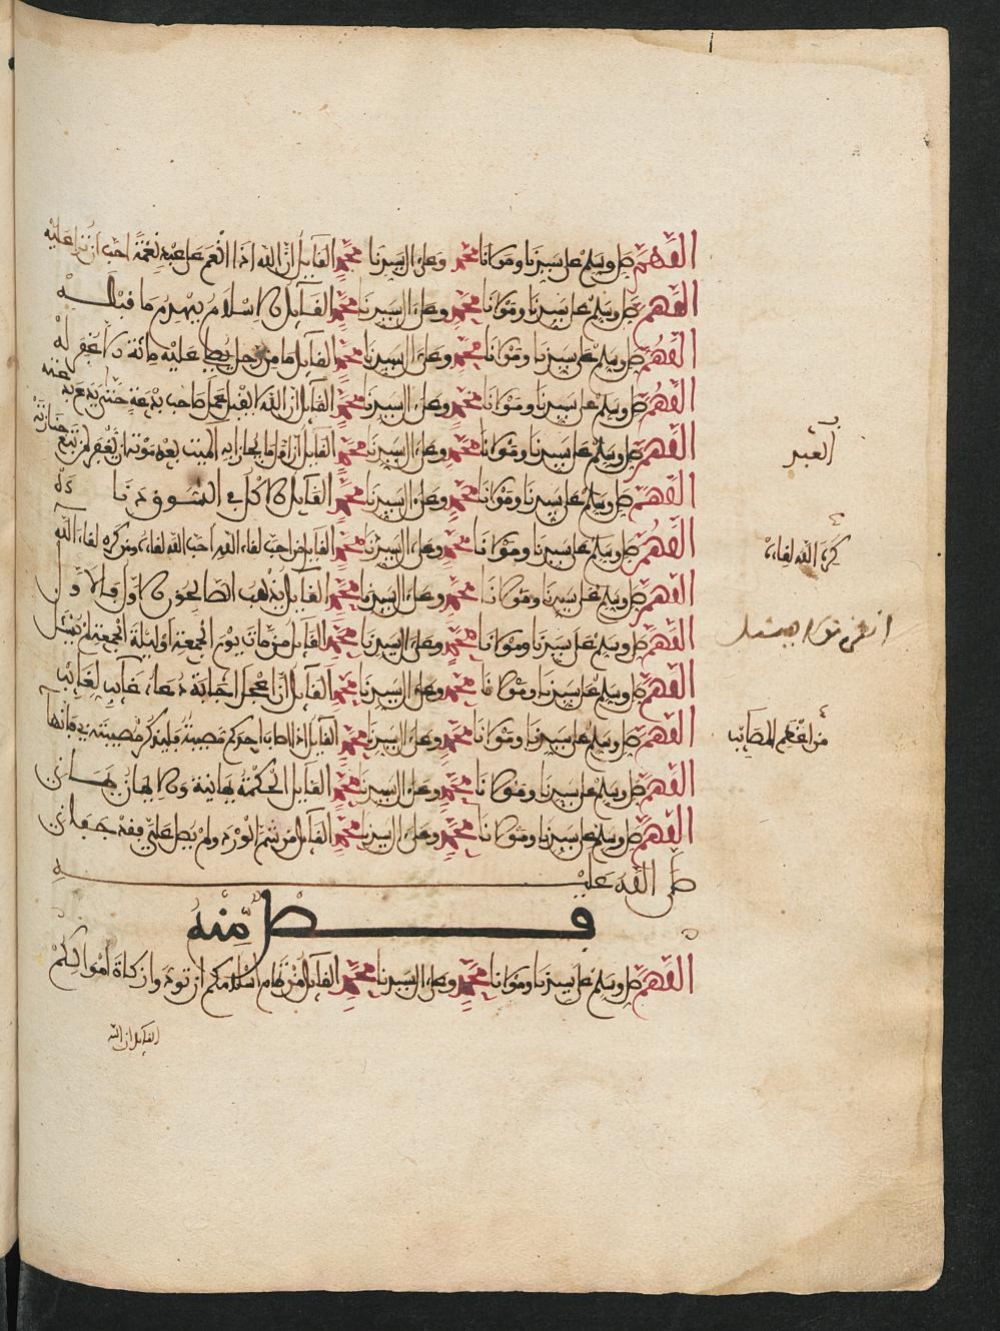 اللهم صل وسلم على سيدنا ومولانا محمد وعلى ال سيدنا محمد القايل ان الله اذا انعم على عبد نعمة احب ان ترا عليه
اللهم صل وسلم على سيدنا ومولانا محمد وعلى ال سيدنا محمد القايل الاسلام يهدم ما قبله
اللهم صل وسلم على سيدنا ومولانا محمد وعلى ال سيدنا محمد القايل ما من رجل يصلي عليه مائة الا غفر له
اللهم صل وسلم على سيدنا ومولانا محمد وعلى ال سيدنا محمد القايل ان الله لا يقبل عمل صاحب بدعة حتى يدع بدعته
اللهم صل وسلم على سيدنا ومولانا محمد وعلى ال سيدنا محمد القايل ان اول ما يجازا به الميت بعد موته ان يغفر لمن تبع جنازته
العبد
اللهم صل وسلم على سيدنا ومولانا محمد وعلى ال سيدنا محمد القايل الاكل في السوق دناءة
اللهم صل وسلم على سيدنا ومولانا محمد وعلى ال سيدنا محمد القايل من احب لقاء الله احب الله لقاءه ومن كره لقاء الله
كره الله لقاءه
اللهم صل وسلم على سيدنا ومولانا محمد وعلى ال سيدنا محمد القايل يذهب الصالحون الاول فالاول
اللهم صل وسلم على سيدنا ومولانا محمد وعلى ال سيدنا محمد القايل من مات يوم الجمعة او ليلة الجمعة لم يسئل
اللهم صل وسلم على سيدنا ومولانا محمد وعلى ال سيدنا محمد القايل ان اعجل اجابة دعاء غائب لغائب
اللهم صل وسلم على سيدنا ومولانا محمد وعلى ال سيدنا محمد القايل اذا اصاب احدكم مصيبة فليذكر مصيبته بي فانها
من اعظم المصائب
اللهم صل وسلم على سيدنا ومولانا محمد وعلى ال سيدنا محمد القايل الحكمة يمانية والايمان يمان
اللهم صل وسلم على سيدنا ومولانا محمد وعلى ال سيدنا محمد القايل من شم الورد ولم يصل علي فقد جفاني
صلى الله عليه
فصل منه
اللهم صل وسلم على سيدنا ومولانا محمد وعلى ال سيدنا محمد القايل من تمام اسلامكم ان تودوا زكاة اموالكم
القايل ان الله